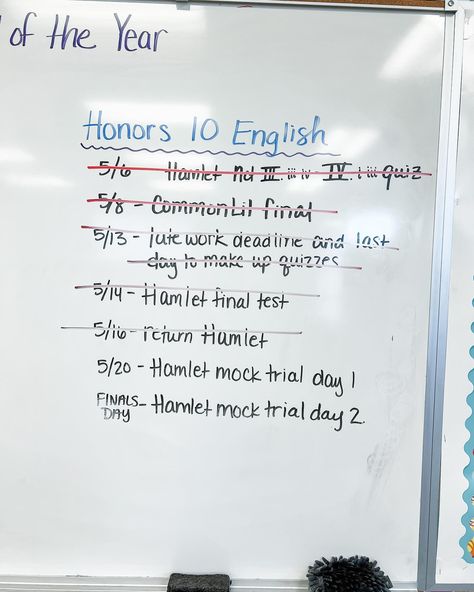 of the Year
Honors 10 English
5/6 Hamlet Act III. iii iv - IV. i iii quiz
5/8 - CommonLit final
5/13 - late work deadline and last
day to make up quizzes
5/14 - Hamlet final test
5/16 - return Hamlet
5/20 - Hamlet mock trial day 1
FINALS DAY - Hamlet mock trial day 2.